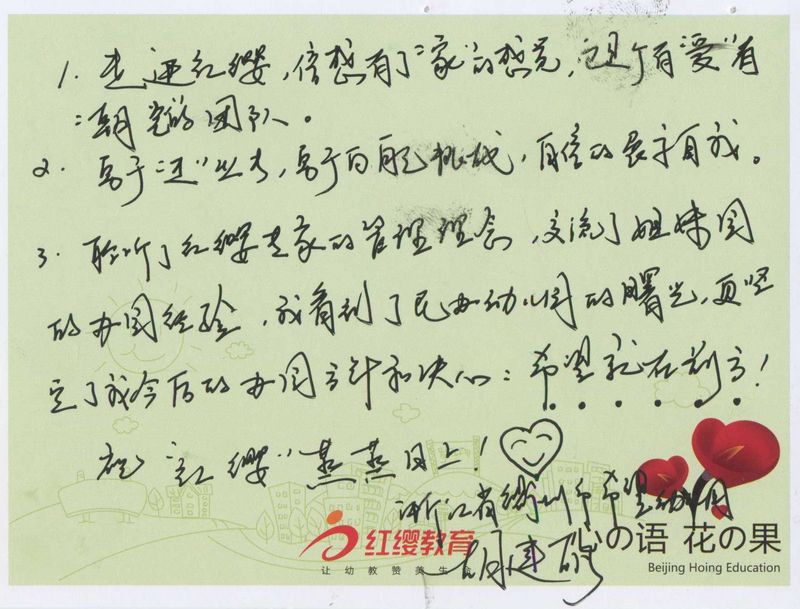 1. 走进红缨,倍感有了"家"的感觉,这个有"爱"有
朝气的团队。
2. 勇于"进"出去,勇于向自己挑战,自信的展示自我。
3. 聆听了红缨专家的管理理念,交流了姐妹园
的办园经验,我看到了民办幼儿园的曙光,更坚
定了我今后的办园方针和决心:希望就在前方!
祝"红缨"蒸蒸日上!
浙江省衢州市希望幼儿园
胡建
红缨教育
让幼教赞美生命
心の语 花の果
Beijing Hoing Education